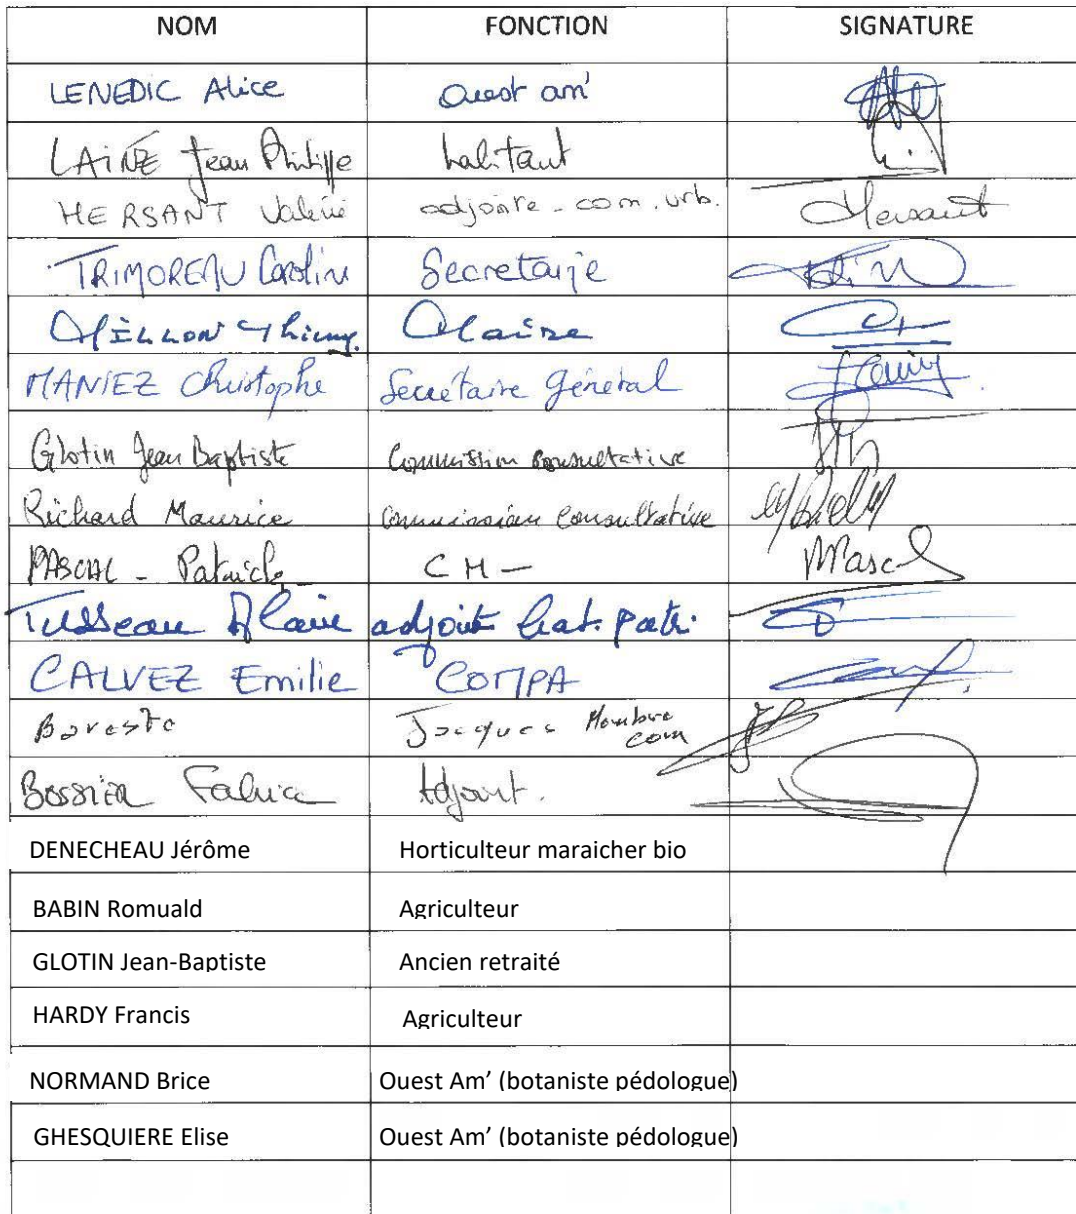 NOM FONCTION SIGNATURE
LENEDIC Alice Ouest am'
LAINÉ Jean Philippe habitant
HERSANT Valérie adjointe - com. urb. Hersant
TRIMOREAU Caroline Secretaire
MEILLON Thierry. Maire
MANIEZ Christophe Secrétaire Général
Glotin Jean Baptiste Commission consultative
Richard Maurice Commission consultative
PASCAL - Patrick C M -
Tusseau Alain adjoint bat. patri.
CALVEZ Emilie COMPA
Jacques Membre com
Adjoint.
DENECHEAU Jérôme Horticulteur maraicher bio
BABIN Romuald Agriculteur
GLOTIN Jean-Baptiste Ancien retraité
HARDY Francis Agriculteur
NORMAND Brice Ouest Am' (botaniste pédologue)
GHESQUIERE Elise Ouest Am' (botaniste pédologue)